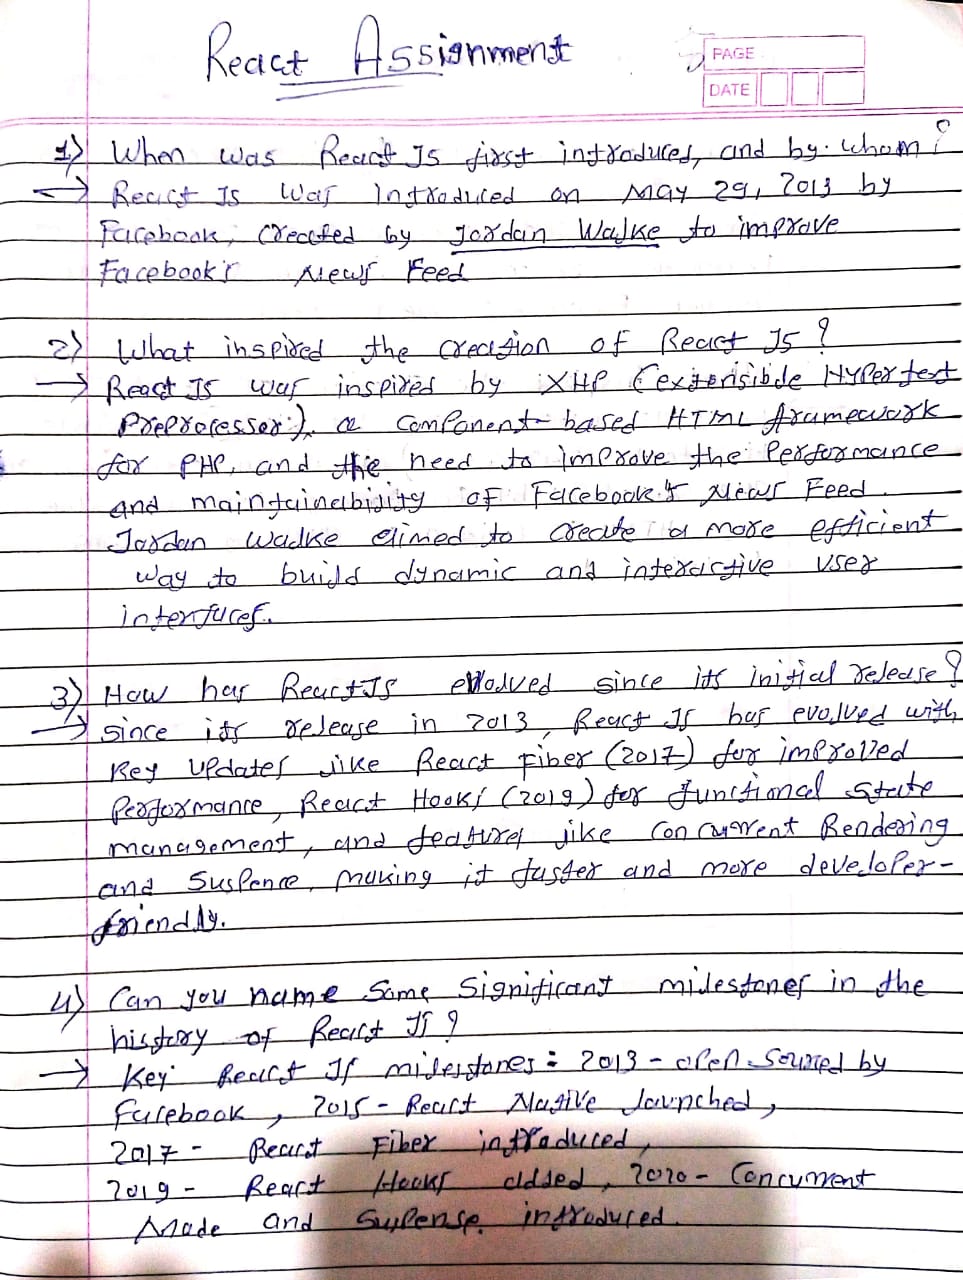 React Assignment
PAGE
DATE
1) When was React Js first introduces, and by whom?
→ React Js was Introduced on May 29, 2013 by
Facebook, created by Jordan Walke to improve
Facebook's News Feed
2) What inspired the creation of React Js?
→ React Js was inspired by XHP (extensible Hypertext
Preprocessor), a component-based HTML framework
for PHP, and the need to improve the Performance
and maintainability of Facebook's News Feed.
Jordan Walke aimed to create a more efficient
way to build dynamic and interactive user
interfaces.
3) How has React Js evolved since its initial release?
→ since its release in 2013, React Js has evolved with
Key updates like React Fiber (2017) for improved
Performance, React Hooks (2019) for functional state
management, and features like Concurrent Rendering
and Suspence, making it faster and more developer-
friendly.
4) Can you name some significant milestones in the
history of React Js?
→ Key React Js milestones: 2013 - open-sourced by
Facebook, 2015 - React Native launched,
2017 - React Fiber introduced,
2019 - React Hooks added, 2020 - Concurrent
Mode and Supense introduced.